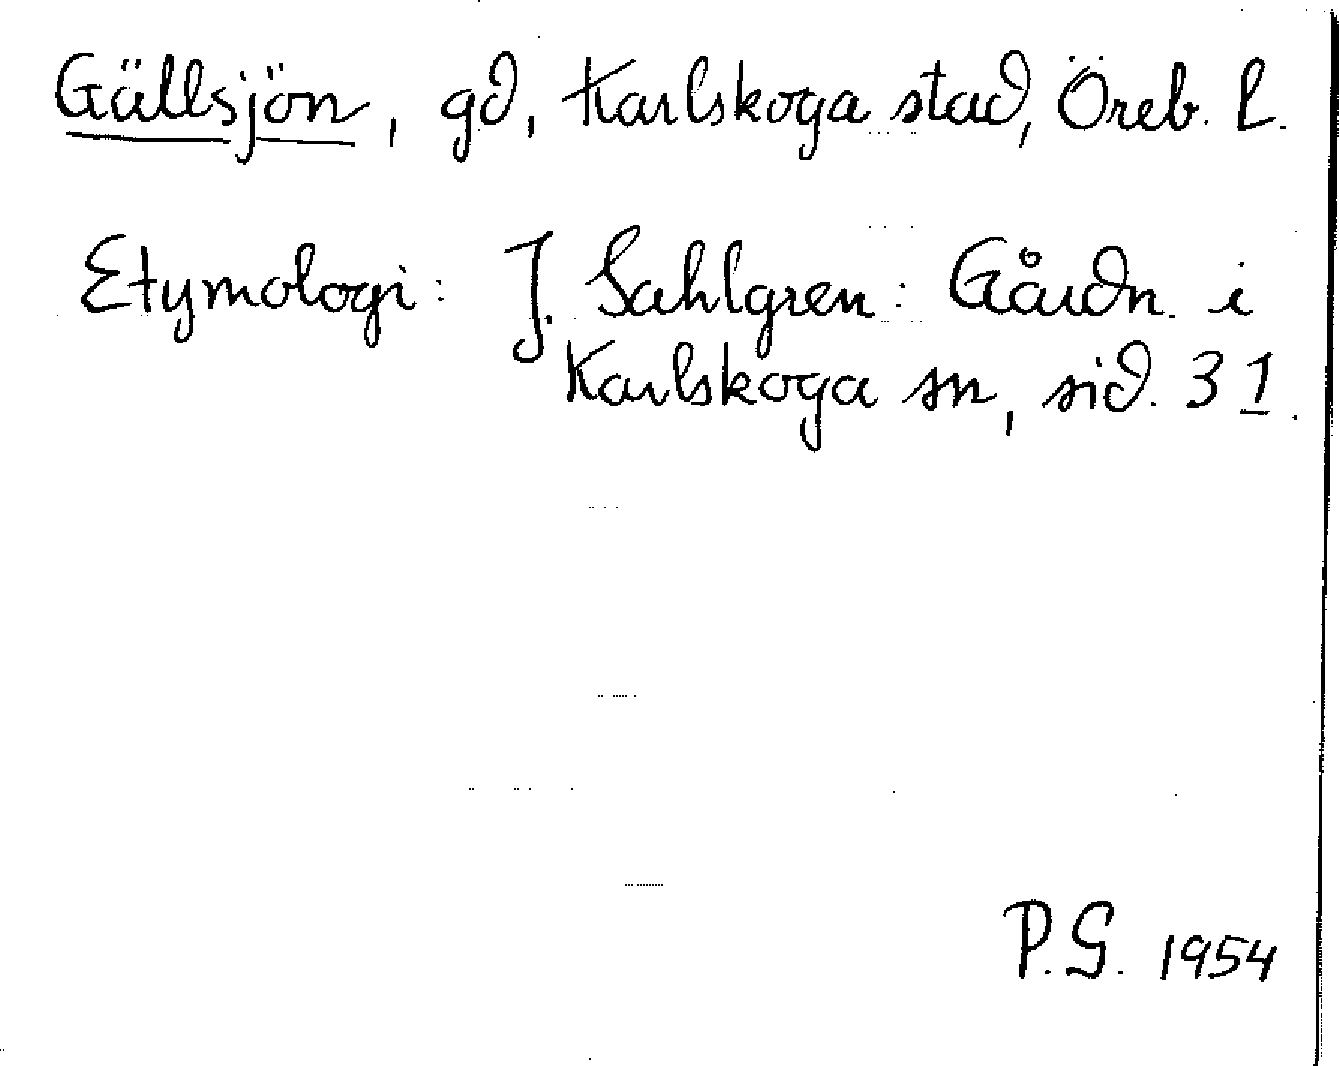 Gällsjön, gd, Karlskoga stad, Öreb. L.
Etymologi: J. Sahlgren: Gårdn. i
Karlskoga sn, sid. 31.
P.G. 1954